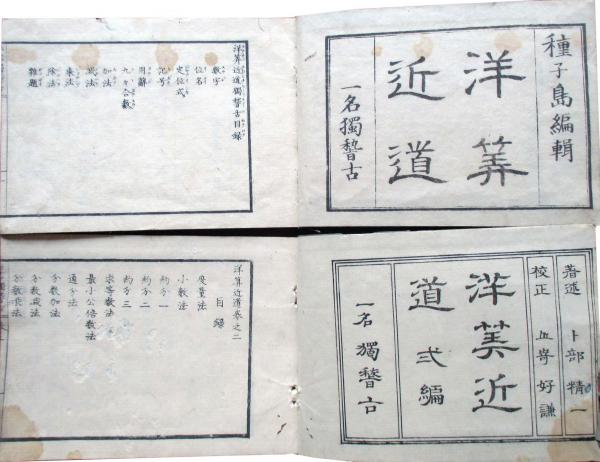 種子島編輯
洋筭
近道
一名獨稽古
洋筭近道獨稽古目録
數字
位名
定位式
記号
用辭
九々合數
加法
減法
乗法
除法
雜題
著述 卜部精一
校正 好謙
洋筭近
道 弍編
一名獨稽古
洋算近道巻之二
目録
度量法
小數法
約分一
約分二
約分三
求等數法
最小公倍數法
通分法
分數加法
分數減法
分數乗法